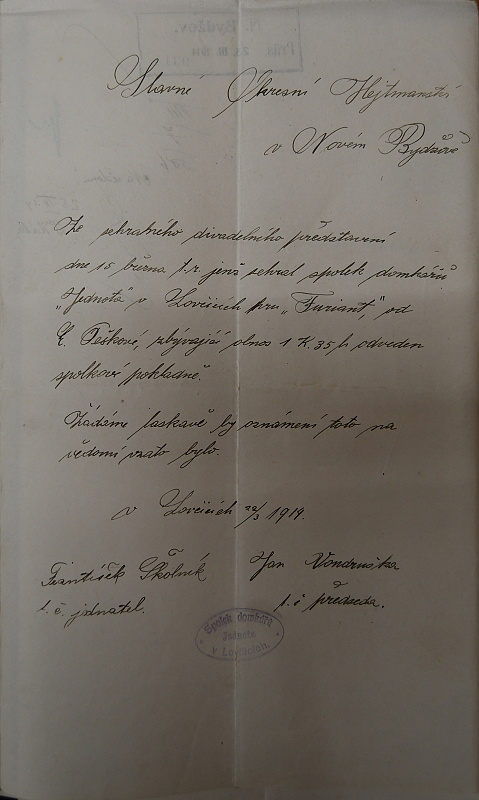 Slavné Okresní Hejtmanství
v Novém Bydžově
Ze sehraného divadelního představení
dne 15 března t.r. jenž sehral spolek domkářů
„Jednota" v Lovčicích hru „Furiant," od
E. Peškové, zbývající obnos 1 K. 35 h odveden
spolkové pokladně.
Žádáme laskavě by oznámení toto na
vědomí vzato bylo.
v Lovčicích 22/3 1914.
František Školník Jan Vondruška
t. č. jednatel. t. č předseda.
Spolek domkářů
Jednota
v Lovčicích.